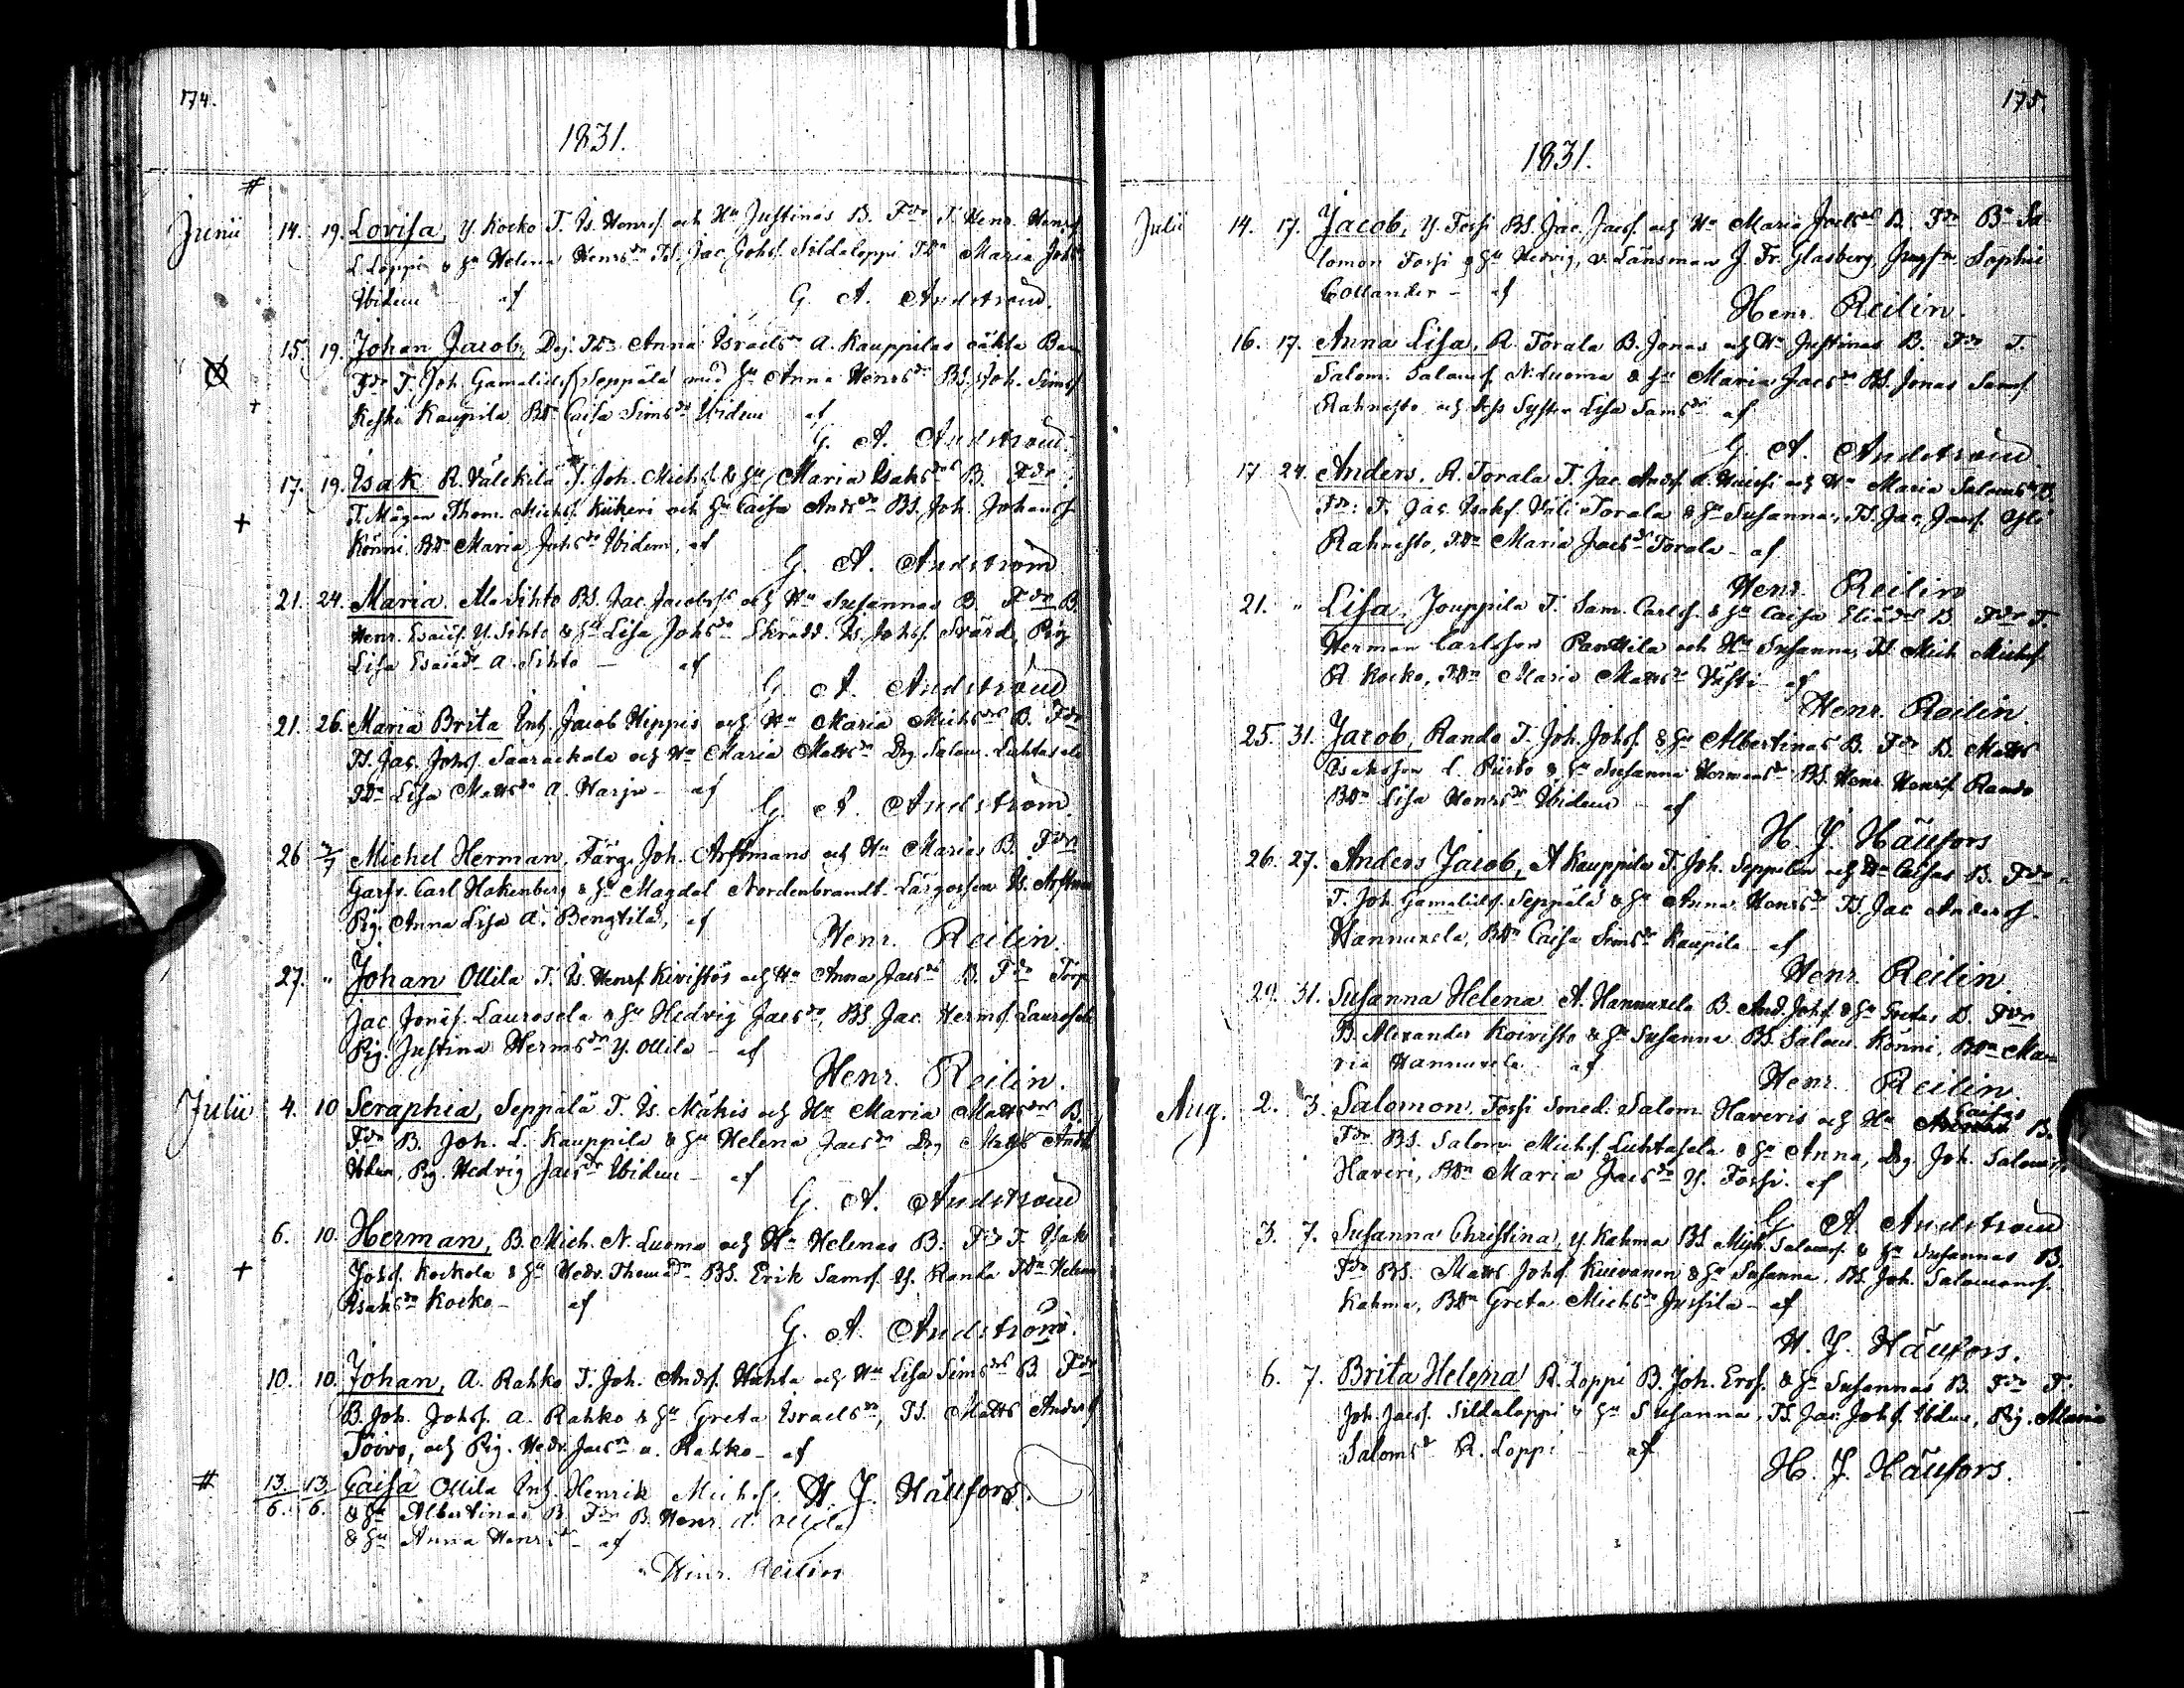 174.
1831.
#
Junii 14. 19. Lovisa, Y. Kocko T. Is. Henrs. och Hu Justinas B. Fdr T. Henr. Henrss.
L. Loppi & Hu Helena Henrsdr TS. Jac. Johs. Sildaloppi TDr Maria Johsdr
Ibidem af G. A. Andström.
15. 19. Johan Jacob, Dej. TDr Anna Israelsdr A. Kauppilas oäkta Barn
Fdr T. Joh. Gamaliels. Seppälä med Hu Anna Henrsdr BS. Joh. Sims.
Keski Kaupila BDr Caisa Simsdr Ibidem af
G. A. Andström.
17. 19. Isak R. Välikilä T. Joh. Michs. & Hu Maria Isaksdrs B. Fdr
T. Mågen Thom. Michs. Kükeri och Hu Caisa Andsdr BS. Joh. Johanss.
Könni, BDr Maria Johsdr Ibidem, af
G. A. Andström
21. 24. Maria Ala Sihto BS. Jac. Jacobss. och Hu Susannas B. Fdr B.
Henr. Esaiis. Y. Sihto & Hu Lisa Johsdr Skrädd. Is. Johs. Svärd, Pig.
Lisa Esaiædr A. Sihto – af
G. A. Andström
21. 26. Maria Brita Inh. Jacob Hippis och Hu Maria Michsdrs B. Fdr
TS. Jac. Johs. Saarackala och Hu Maria Mattsdr Drg. Salom. Luhtasela
TDr Lisa Mattsdr A. Harju – af
G. A. Andström.
26 3/7 Michel Herman, Färg. Joh. Arftmans och Hu Marias B. Fdr
Garfv. Carl Hakenberg & Hu Magdal. Nordenbrandt. Lärgossen Is. Arftman
Pig. Anna Lisa A. Bengtila, af
Henr. Reilin.
27. " Johan Ollila T. Is. Henrs. Kivistös och Hu Anna Jacsdrs B. Fdr Torp.
Jac. Jonis. Laurosela & Hu Hedvig Jacsdr, BS. Jac. Herms. Laurosela
Pig. Justina Hermsdr Y. Ollila – af
Henr. Reilin.
Julii 4. 10 Seraphia, Seppälä T. Is. Mäkis och Hu Maria Mattsdrs B.
Fdr B. Joh. L. Kauppila & Hu Helena Jacsdr Drg. Matts Ands.
Pig. Hedvig Jacsdr Ibidem – af
G. A. Andström
6. 10. Herman, B. Mich. N. Luoma och Hu Helenas B. Fdr T. Isak
Johs. Kockola & Hu Hedv. Thomædr BS. Erik Sams. Y. Randa TDr Helena
Isaksdr Kocko – af
G. A. Andström.
10. 10. Johan, A. Rahko T. Joh. Ands. Hahta och Hu Lisa Simsdrs B. Fdr
B. Joh. Johs. A. Rahko & Hu Greta Israelsdr, TS. Matts Anderss.
Toivo, och Pig. Hedv. Jacsdr A. Rahko – af
# 13/6. 13/6. Caisa Ollila Inh. Henrik Michs. H. J. Häufors.
& Hu Albertinas B. Fdr B. Henr. A. Ollila
& Hu Anna Henrsdr – af
Henr. Reilin
175.
1831.
Julii 14. 17. Jacob, Y. Fossi BS. Jac. Jacs. och Hu Maria Joelsdrs B. Fdr Bn Sa-
lomon Fossi & Hu Hedvig, v. Länsman J. Fr. Glasberg, Jungfru Sophie
Collander – af
Henr. Reilin.
16. 17. Anna Lisa, R. Torala B. Jonas och Hu Justinas B. Fdr T.
Salom. Saloms. N. Luoma & Hu Maria Jacsdr BS. Jonas Sams.
Rahnasto och dess Syster Lisa Samsdr af
G. A. Andström
17 24. Anders, R. Torala T. Jac. Ands. A. och Hu Maria Salomsdrs B.
Fdr: T. Jac. Isaks. Väli Torala & Hu Susanna, TS. Jac. Jacs. Yli
Rahnasto, TDr Maria Jacsdr Torala – af
Henr. Reilin
21. " Lisa, Jouppila T. Sam. Carls. & Hu Caisa Eliædrs B. Fdr T.
Herman Carlsson Panttila och Hu Susanna, TS. Mich. Michs.
R. Kocko, TDr Maria Mattsdr Västi – af
Henr. Reilin.
25. 31. Jacob, Rando T. Joh. Johs. & Hu Albertinas B. Fdr B. Matts
Isaksson L. Piirto & Hu Susanna Hermansdr BS. Henr. Henrs. Rando
BDr Lisa Henrsdr Ibidem – af
H. J. Häufors
26. 27. Anders Jacob, A Kauppila T. Joh. Seppelin och Hu Caisas B. Fdr
T. Joh. Gamaliels. Seppälä & Hu Anna Henrsdr TS. Jac. Anderss.
Hannuxela, BDr Caisa Simsdr Kaupila – af
Henr. Reilin.
29. 31. Susanna Helena A. Hannuxela B. And. Johs. & Hu Gretas B. Fdr
B. Alexander Koivisto & Hu Susanna BS. Salom. Könni, BDr Ma-
ria Hannuxela af
Henr. Reilin.
Aug. 2. 3. Salomon Fossi Smed. Salom. Haveris och Hu Caisas B.
Fdr BS. Salom. Michs. Luhtasela & Hu Anna, Drg. Joh. Saloms.
Haveri, BDr Maria Jacsdr Y. Fossi. af
G. A. Andström
3. 7. Susanna Christina, Y. Kahma BS. Mich. Saloms. & Hu Susannas B.
Fdr BS. Matts Johs. Kuivanen & Hu Susanna, BS. Joh. Salomons.
Kahma, BDr Greta Michsdr Jussila – af
H. J. Häufors.
6. 7. Brita Helena R. Loppi B. Joh. Erss. & Hu Susannas B. Fdr T.
Joh. Jacs. Sildaloppi & Hu Susanna, TS. Jac. Johs. Ibidem, Pig. Maria
Salomsdr R. Loppi – af
H. J. Häufors.